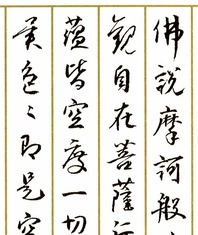 佛說摩訶般
觀自在菩薩行
蘊皆空度一切
異色〻即是空